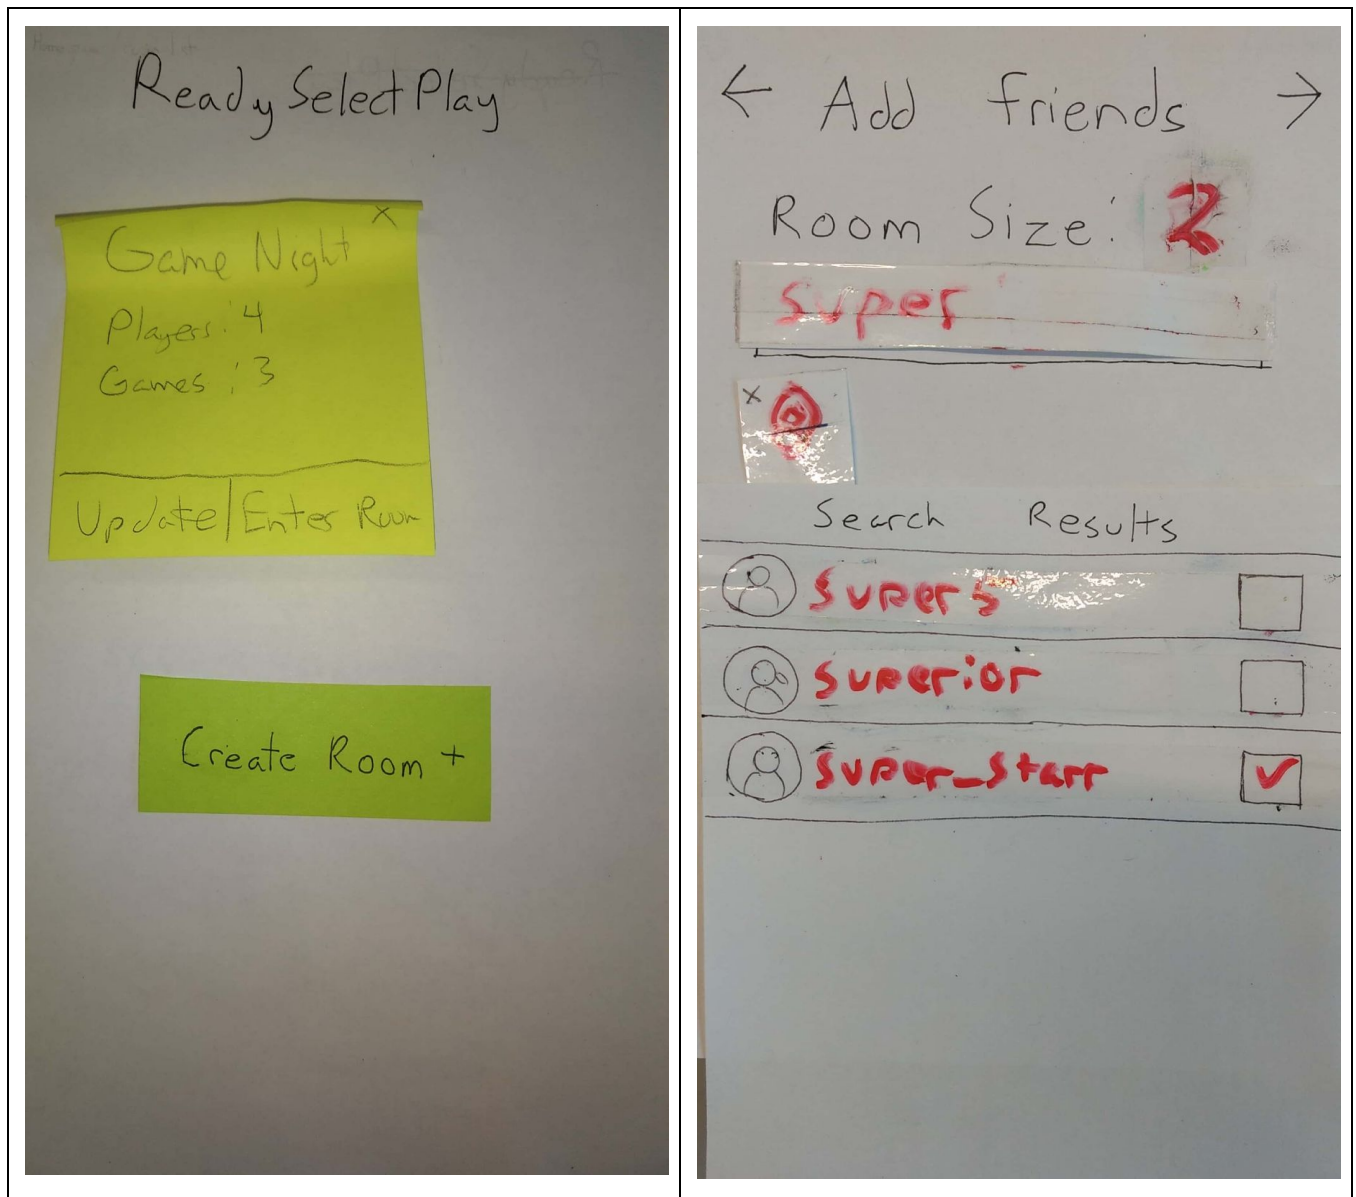 Ready Select Play
x
Game Night
Players: 4
Games: 3
Update | Enter Room
Create Room +
← Add friends →
Room Size: 2
super
x
Search Results
super5
superior
super_starr